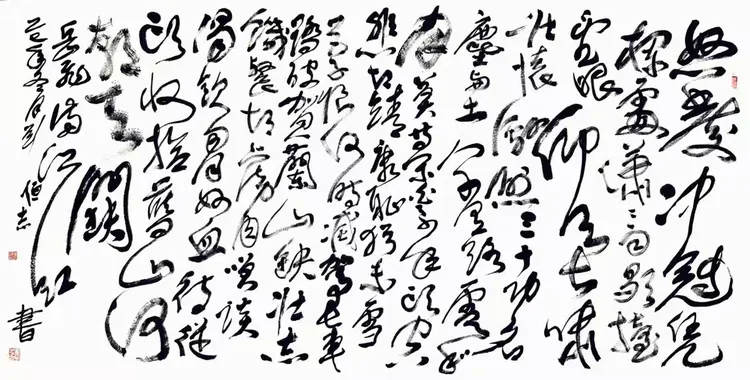 怒發冲冠凭
栏處潇潇雨歇抬
望眼仰天长啸
壮懷激烈三十功名
塵与土八千里路雲和
月莫等闲白了少年头空
悲切靖康耻犹未雪
臣子恨何时滅驾长車
踏破贺蘭山缺壮志
饑餐胡虜肉笑谈
渴饮匈奴血待從
头收拾舊山河
朝天闕
岳飛满江红書
年冬月